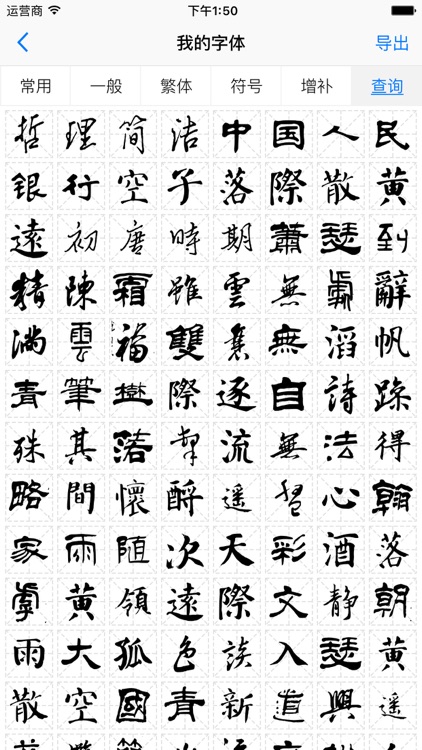 运营商 下午1:50
我的字体 导出
常用 一般 繁体 符号 增补 查询
哲 理 简 洁 中 国 人 民
银 行 空 子 落 際 散 黄
遠 初 唐 時 期 蕭 瑟 到
精 陳 霜 雖 雲 無 處 辭
满 雲 福 雙 無 滔 帆
青 筆 樹 際 逐 自 詩 跡
殊 其 落 流 無 法 得
略 間 懷 酹 遥 心 翰
家 雨 随 次 天 彩 酒 落
虞 黄 領 遠 際 文 靜 朝
雨 大 孤 色 談 入 瑟 黄
散 空 國 青 新 道 興 遥